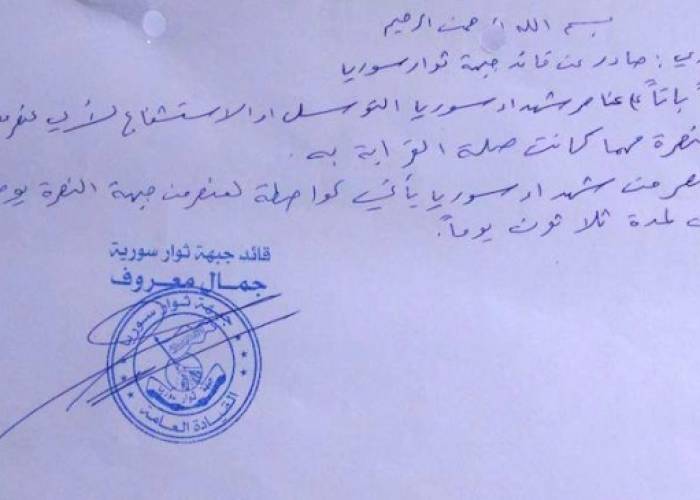 بسم الله الرحمن الرحيم
صادر عن قائد جبهة ثوار سوريا
باتاً عناصر شهداء سوريا التوسل او الاستشفاع لأي
مهما كانت صلة القرابة به .
من شهداء سوريا يأتي كواصطة لعنصر من جبهة النصرة
لمدة ثلاثون يوماً.
قائد جبهة ثوار سورية
جمال معروف
جبهة ثوار سوريا
جبهة ثوار سوريا
القيادة العامة